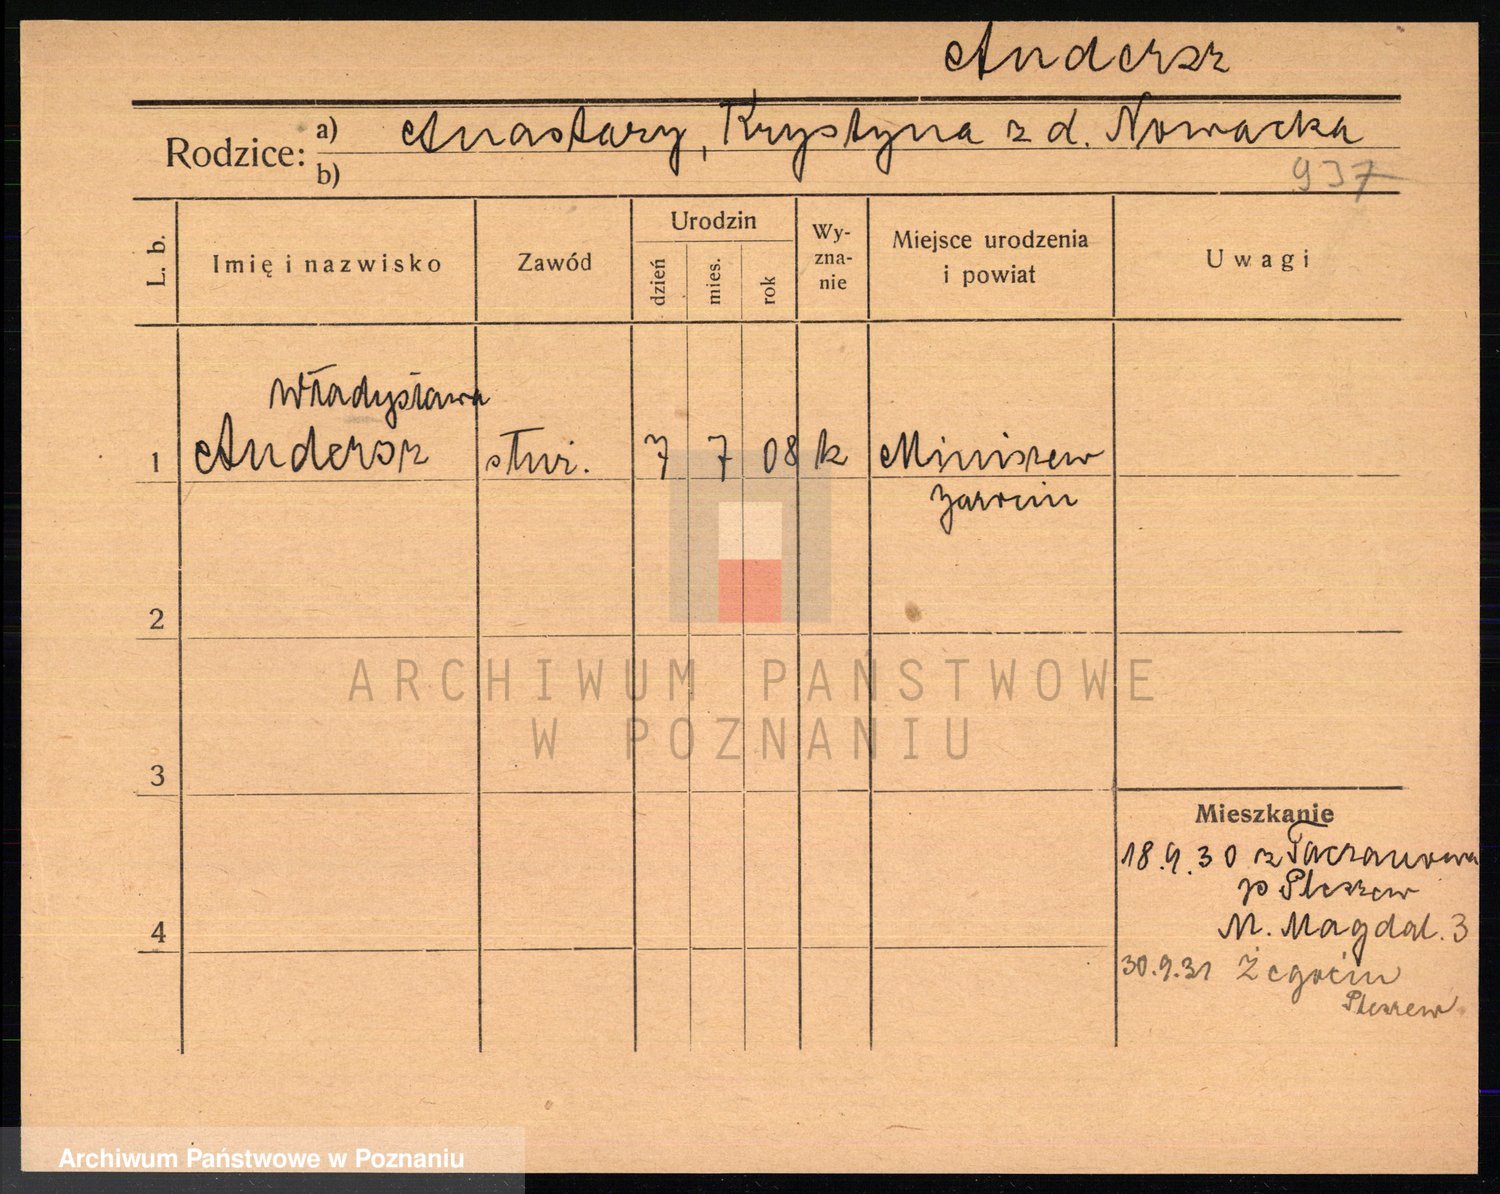 Andersz
Rodzice: a) Anastazy, Krystyna z d. Nowacka
b)
937
L. b. Imię i nazwisko Zawód Urodzin dzień mies. rok Wy-zna-nie Miejsce urodzenia i powiat Uwagi
Władysława
1 Andersz służ. 7 7 08 k Miniszew
Jarocin
2
ARCHIWUM PAŃSTWOWE
W POZNANIU
3
Mieszkanie
18.9.30 z Taczanowa
p Pleszew
4 M. Magdal. 3
30.9.31 Żegocin
Pleszew
Archiwum Państwowe w Poznaniu